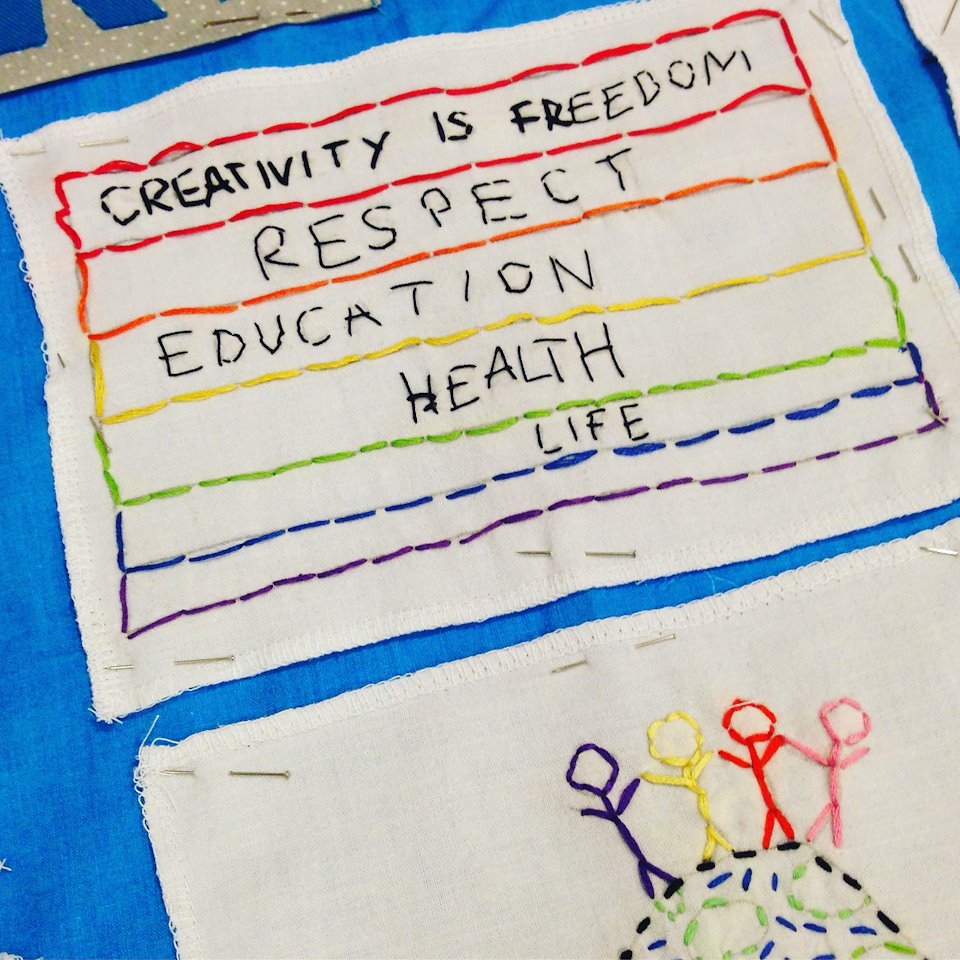 CREATIVITY IS FREEDOM
RESPECT
EDUCATION
HEALTH
LIFE